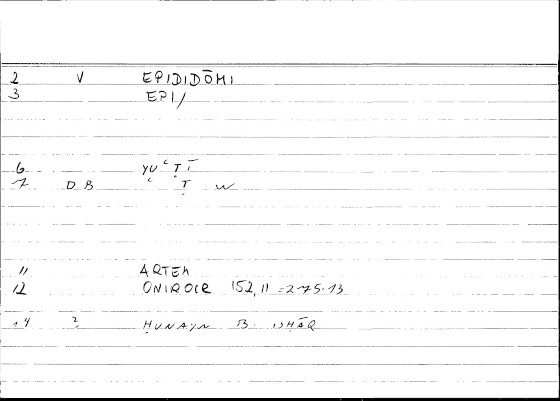 2 V EPIDIDŌMI
3 EPI/
6 YUʿṬĪ
7 DB ʿ Ṭ W
11 ARTEM
12 ONIROCR 152,11 = 275.13
14 2 ḤUNAYN B. ISḤĀQ